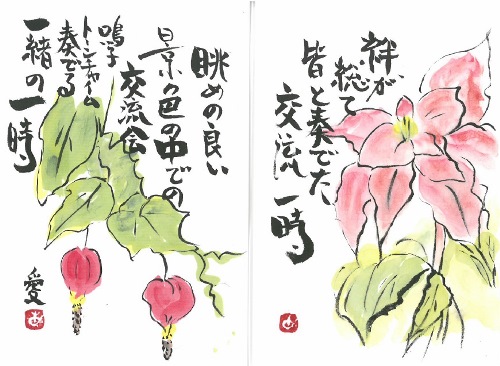 眺めの良い
景色の中での
交流会
鳴子
トーンチャイム
奏でる
一緒の一時
愛
あ
絆が
総て
皆と奏でた
交流一時
あ